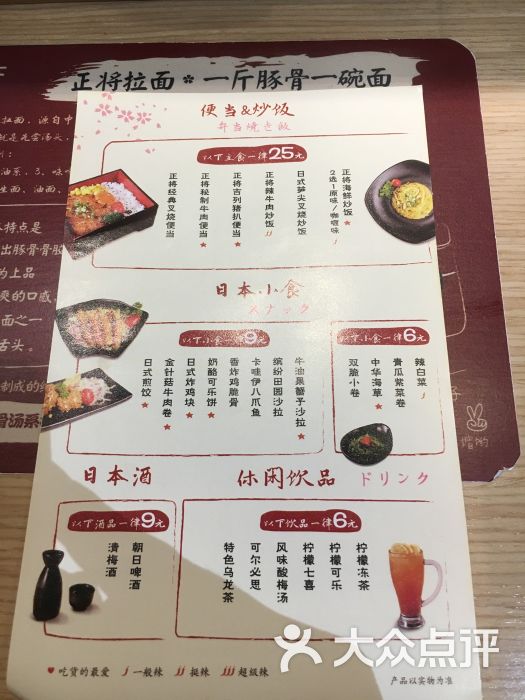 正将拉面 一斤豚骨一碗面
便当&炒饭
弁当焼き飯
以下主食一律25元
正将海鲜炒饭★
2选1原味/咖喱味
日式笋尖叉烧炒饭
正将辣牛肉炒饭
正将吉列猪扒便当★
正将秘制牛肉便当★
正将经典叉烧便当
日本小食
スナック
以下小食一律9元
牛油果蟹子沙拉★
缤纷田园沙拉
卡哇伊八爪鱼
香炸鸡脆骨
奶酪可乐饼★
日式炸鸡块★
金针菇牛肉卷★
日式煎饺★
以下小食一律6元
辣白菜
青瓜紫菜卷
中华海草★
双脆小卷
日本酒
以下酒品一律9元
朝日啤酒
渍梅酒
休闲饮品 ドリンク
以下饮品一律6元
柠檬冻茶
柠檬可乐
柠檬七喜
风味酸梅汤
可尔必思
特色乌龙茶
吃货的最爱 一般辣 挺辣 超级辣
产品以实物为准
拉面，源自中
生面、油面、
特点是
出豚骨骨胶
为上品
爽的口感
面之一
舌头。
制成的
骨汤系
大众点评